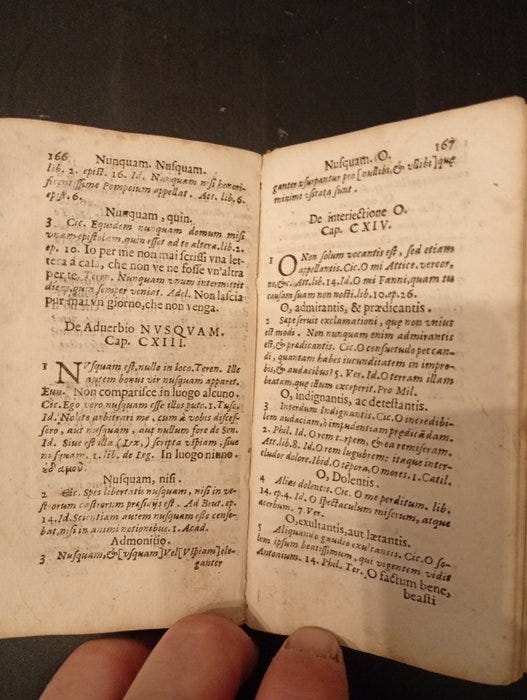 166
Nunquam. Nusquam.
lib. 2. epist. 16. Id. Nunquam nisi honori-
ficentissime Pompeium appellat. Att. lib. 6.
epist. 6.
Nunquam, quin.
3 Cic. Equidem nunquam domum misi
vnam epistolam, quin esset ad te altera. lib. 2.
ep. 10. Io per me non mai scrissi vna let-
tera à casa, che non ve ne fosse vn'altra
per te. Teren. Nunquam vnum intermittit
diem, quin semper veniat. Adel. Non lascia
pur mai vn giorno, che non venga.
De Aduerbio NVSQVAM.
Cap. CXIII.
1 NVsquam est, nullo in loco. Teren. Ille
autem bonus vir nusquam apparet.
Eun. Non comparisce in luogo alcuno.
Cic. Ego vero nusquam esse illos puto. 1. Tusc.
Id. Nolite arbitrari me, cum à vobis disces-
sero, aut nusquam, aut nullum fore de Sen.
Id. Siue est illa (Lex,) scripta vspiam, siue
nusquam. 1. lib. de leg. In luogo niuno.
ἐδαμοῦ.
Nusquam, nisi.
2 Cic. Spes libertatis nusquam, nisi in ve-
strorum castrorum præsidijs est. Ad Brut. ep.
14. Id. Scientiam autem nusquam esse cense-
bat, nisi in animi notionibus. 1. Acad.
Admonitio.
3 Nusquam, &[vsquam] Vel[Vspiam] ele-
ganter
167
Nusquam. O.
ganter vsurpantur pro [nullibi, & vllibi] quę
minime vsitata sunt.
De interiectione O.
Cap. CXIV.
1 O Non solum vocantis est, sed etiam
appellantis. Cic. O mi Attice, vereor,
ne, &c. Att. lib. 14. Id. O mi Fanni, quam tu
causam suam non nosti. lib. 10. ep. 26.
O, admirantis, & prædicantis.
2 Sæpe seruit exclamationi, quę non vnius
est modi. Non nunquam enim admirantis
est, & prædicantis. Cic. O consuetudo peccan-
di, quantam habes iucunditatem in impro-
bis, & audacibus? 5. Ver. Id. O terram illam
beatam, que illum exceperit. Pro Mil.
O, indignantis, ac detestantis.
3 Interdum Indignantis. Cic. O incredibi-
lem audaciam, ò impudentiam prędicādam.
2. Phil. Id. O rem turpem, & ea re miseram.
Att. lib. 8. Id. O rem lugubrem: itaque inter-
cludor dolore. Ibid. O tēpora, O mores. 1. Catil.
O, Dolentis.
4 Aliàs dolentis. Cic. O me perditum. lib.
14. ep. 4. Id. O spectaculum miserum, atque
acerbum. 7. Ver.
O, exultantis, aut lætantis.
5 Aliquando gaudio exultantis. Cic. O so-
lem ipsum beatissimum, qui vigentem vidit
Antonium. 14. Phil. Ter. O factum bene,
beasti